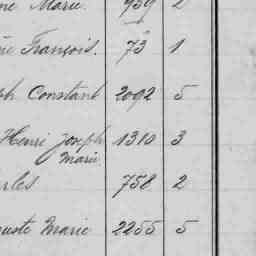 ne Marie. 959 2
ne François. 73 1
ph Constant 2092 5
Henri Joseph 1310 3
Marie
rles 758 2
uste Marie 2255 5